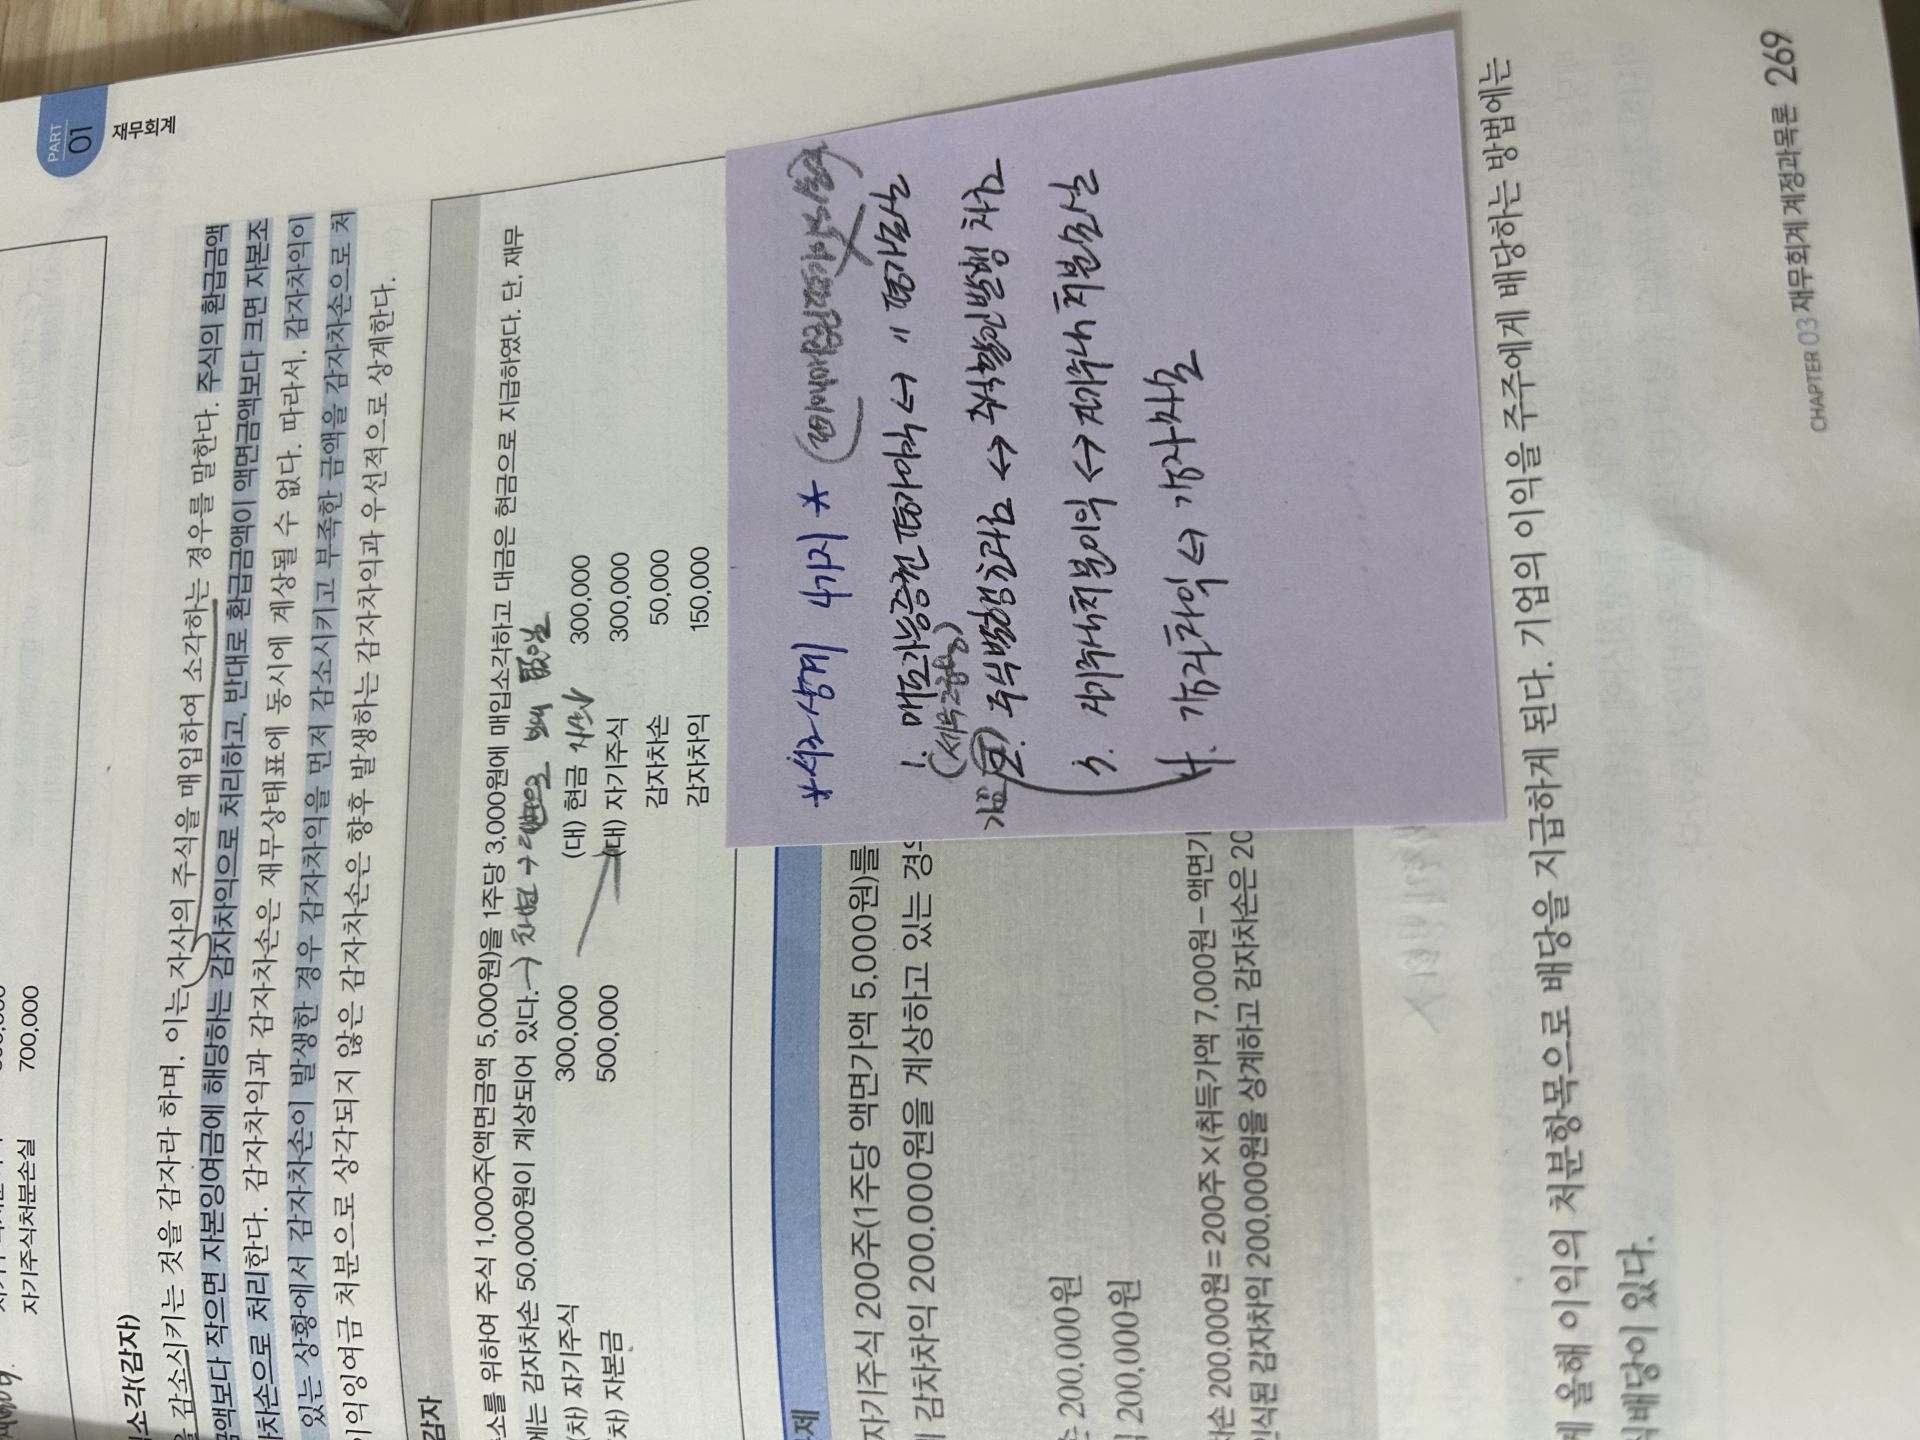 PART
01
재무회계
700,000
자기주식처분손실
소각(감자)
을 감소시키는 것을 감자라 하며, 이는 자사의 주식을 매입하여 소각하는 경우를 말한다. 주식의 환급금액
금액보다 작으면 자본잉여금에 해당하는 감자차익으로 처리하고, 반대로 환급금액이 액면금액보다 크면 자본조
차손으로 처리한다. 감자차익과 감자차손은 재무상태표에 동시에 계상될 수 없다. 따라서, 감자차익이
있는 상황에서 감자차손이 발생한 경우 감자차익을 먼저 감소시키고 부족한 금액을 감자차손으로 처
이익잉여금 처분으로 상각되지 않은 감자차손은 향후 발생하는 감자차익과 우선적으로 상계한다.
감자
소를 위하여 주식 1,000주(액면금액 5,000원)을 1주당 3,000원에 매입소각하고 대금은 현금으로 지급하였다. 단, 재무
에는 감자차손 50,000원이 계상되어 있다.
(차) 자기주식 300,000 (대) 현금 300,000
(차) 자본금 500,000 (대) 자기주식 300,000
감자차손 50,000
감자차익 150,000
*서로상계 4가지*
1. 매도가능증권 평가이익 ↔ " 평가손실
2. 주식발행초과금 ↔ 주식할인발행 차금
3. 자기주식처분이익 ↔ 자기주식 처분손실
4. 감자차익 ↔ 감자차손
제
자기주식 200주(1주당 액면가액 5,000원)를
감차차익 200,000원을 계상하고 있는 경우
손 200,000원
200,000원
차손 200,000원=200주×(취득가액 7,000원-액면가
인식된 감자차익 200,000원을 상계하고 감자차손은 20
제 올해 이익의 처분항목으로 배당을 지급하게 된다. 기업의 이익을 주주에게 배당하는 방법에는
식배당이 있다.
CHAPTER 03 재무회계 계정과목론 269